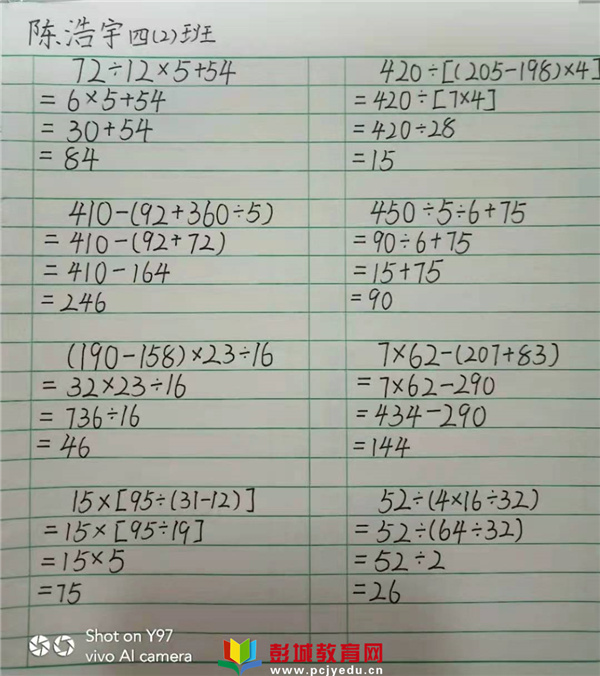 陈浩宇四(2)班
72÷12×5+54
=6×5+54
=30+54
=84
420÷[(205-198)×4]
=420÷[7×4]
=420÷28
=15
410-(92+360÷5)
=410-(92+72)
=410-164
=246
450÷5÷6+75
=90÷6+75
=15+75
=90
(190-158)×23÷16
=32×23÷16
=736÷16
=46
7×62-(207+83)
=7×62-290
=434-290
=144
15×[95÷(31-12)]
=15×[95÷19]
=15×5
=75
52÷(4×16÷32)
=52÷(64÷32)
=52÷2
=26
Shot on Y97
vivo AI camera
彭城教育网
www.pcjyedu.cn